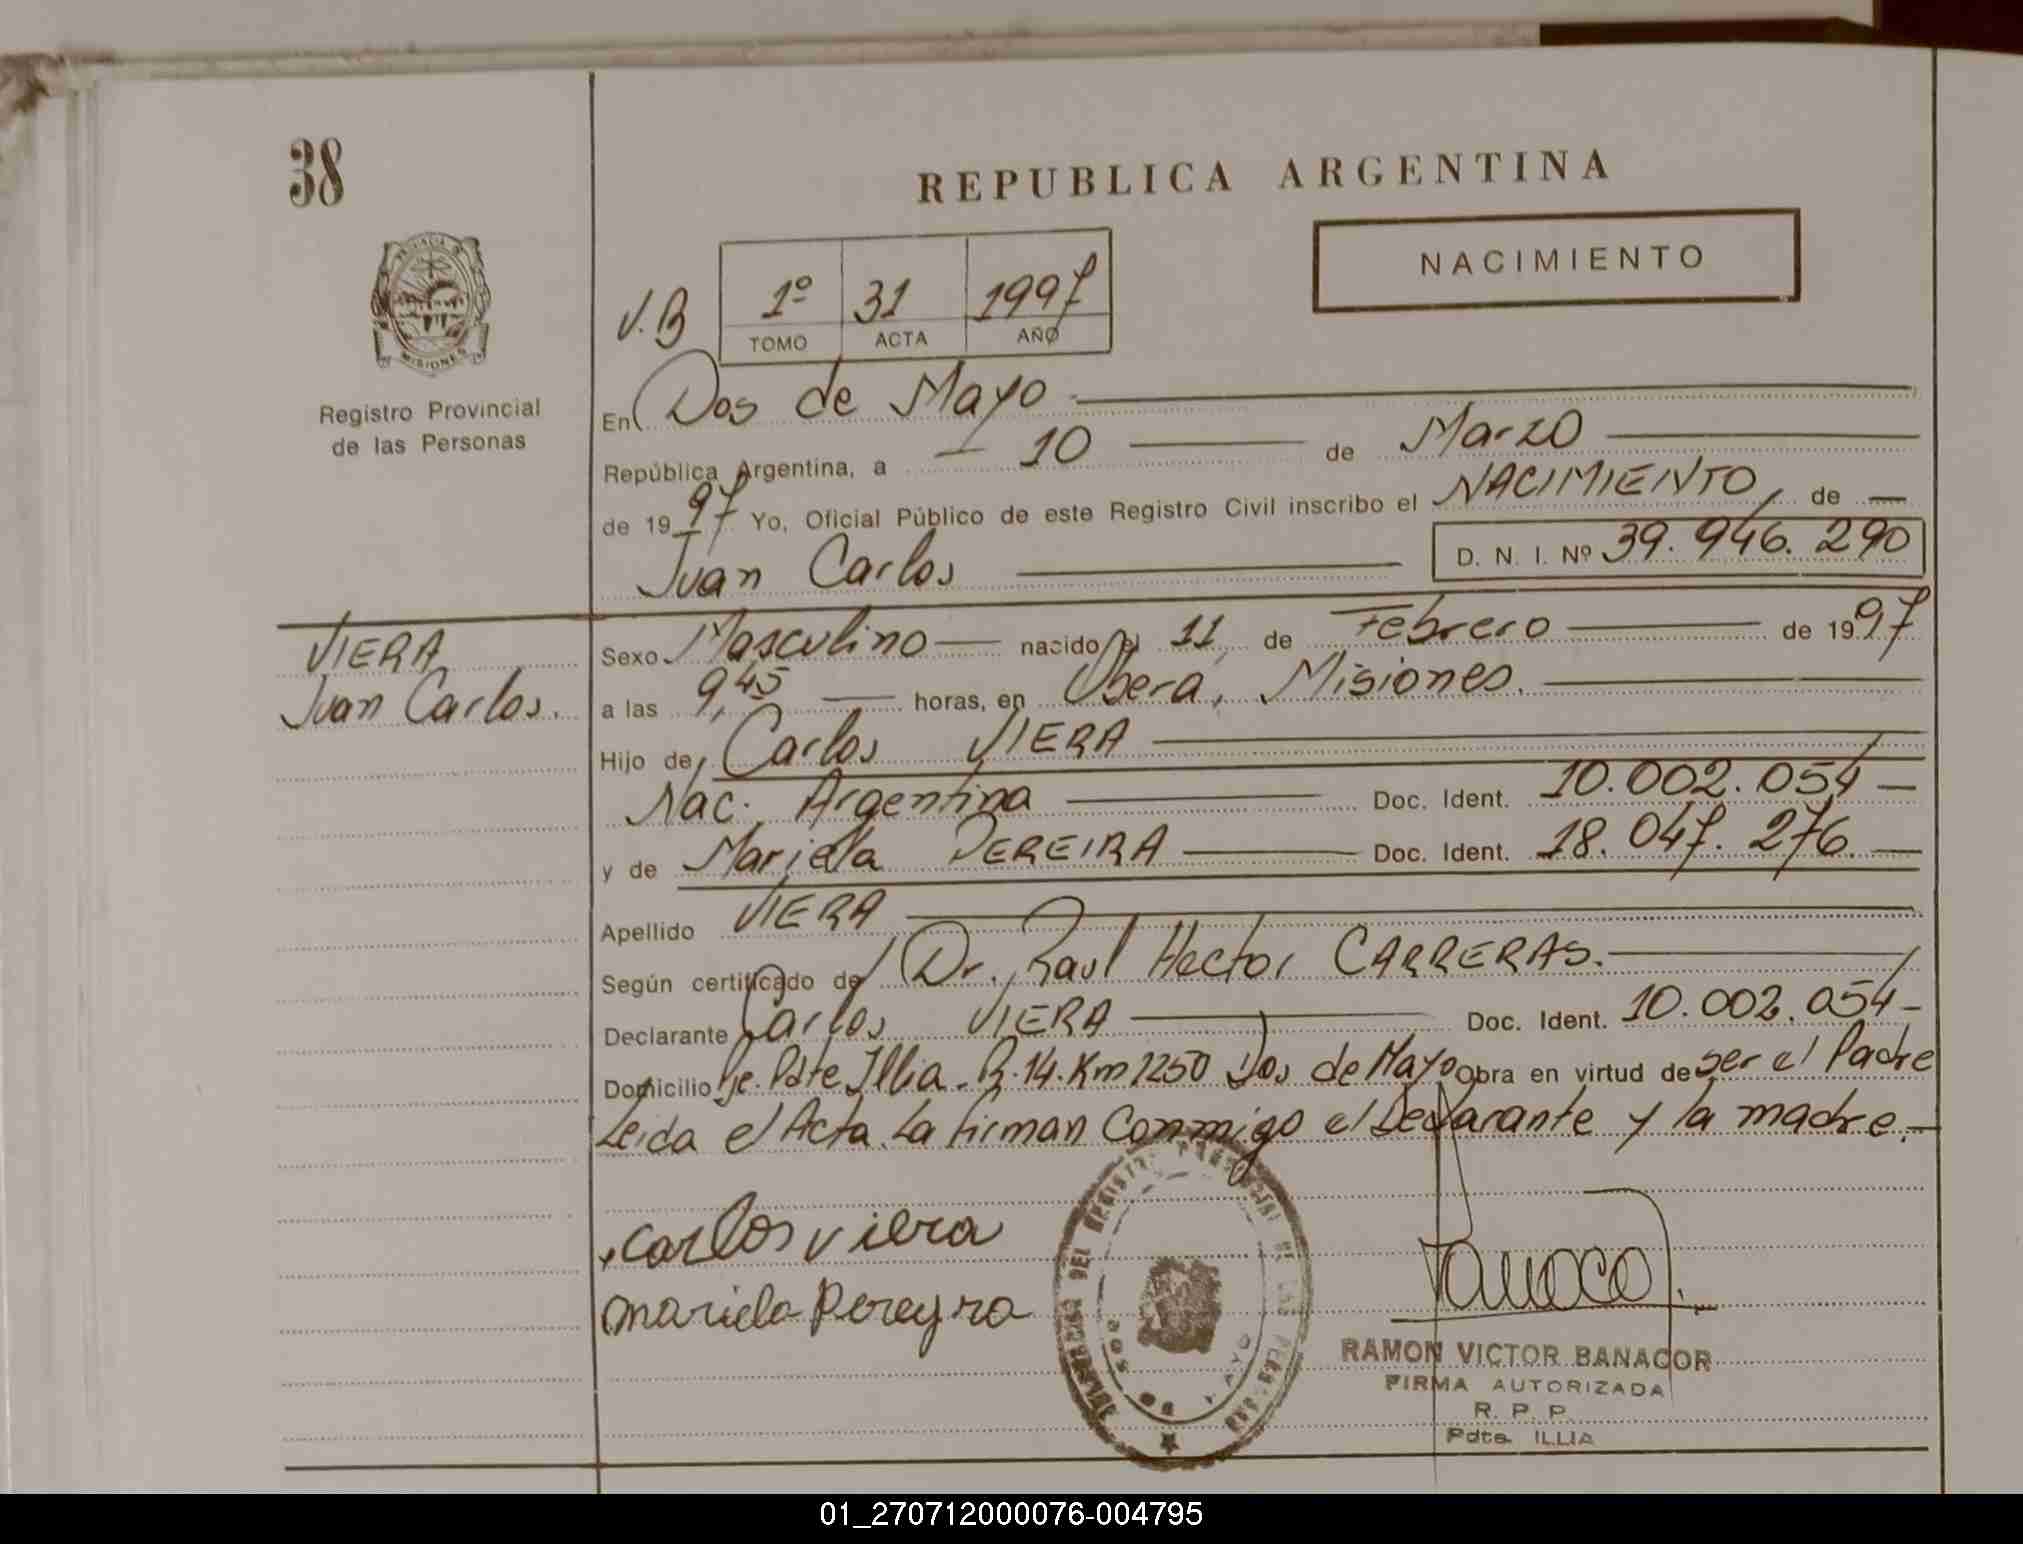 38
REPUBLICA ARGENTINA
NACIMIENTO
MISIONES
Registro Provincial
de las Personas
V.B
1º 31 1997
TOMO ACTA AÑO
En Dos de Mayo
República Argentina, a 10 de Marzo
de 1997 Yo, Oficial Público de este Registro Civil inscribo el NACIMIENTO, de
Juan Carlos D. N. I. Nº 39.946.290
VIERA
Juan Carlos.
Sexo Masculino nacido el 11 de Febrero de 1997
a las 9,45 horas, en Obera, Misiones.
Hijo de Carlos VIERA
Nac. Argentina Doc. Ident. 10.002.054
y de Mariela PEREIRA Doc. Ident. 18.047.276
Apellido VIERA
Según certificado de Dr. Raul Hector CARRERAS.
Declarante Carlos VIERA Doc. Ident. 10.002.054
Domicilio Pdte Illia. R.14. Km 1250 Dos de Mayo obra en virtud de ser el Padre
Leida el Acta La firman Conmigo el Declarante y la madre.
Carlos viera
mariela Pereyra
DEL REGISTRO PROVINCIAL DE LAS PERSONAS
DOS DE MAYO
RAMON VICTOR BANACOR
FIRMA AUTORIZADA
R. P. P.
Pdte. ILLIA
01_270712000076-004795